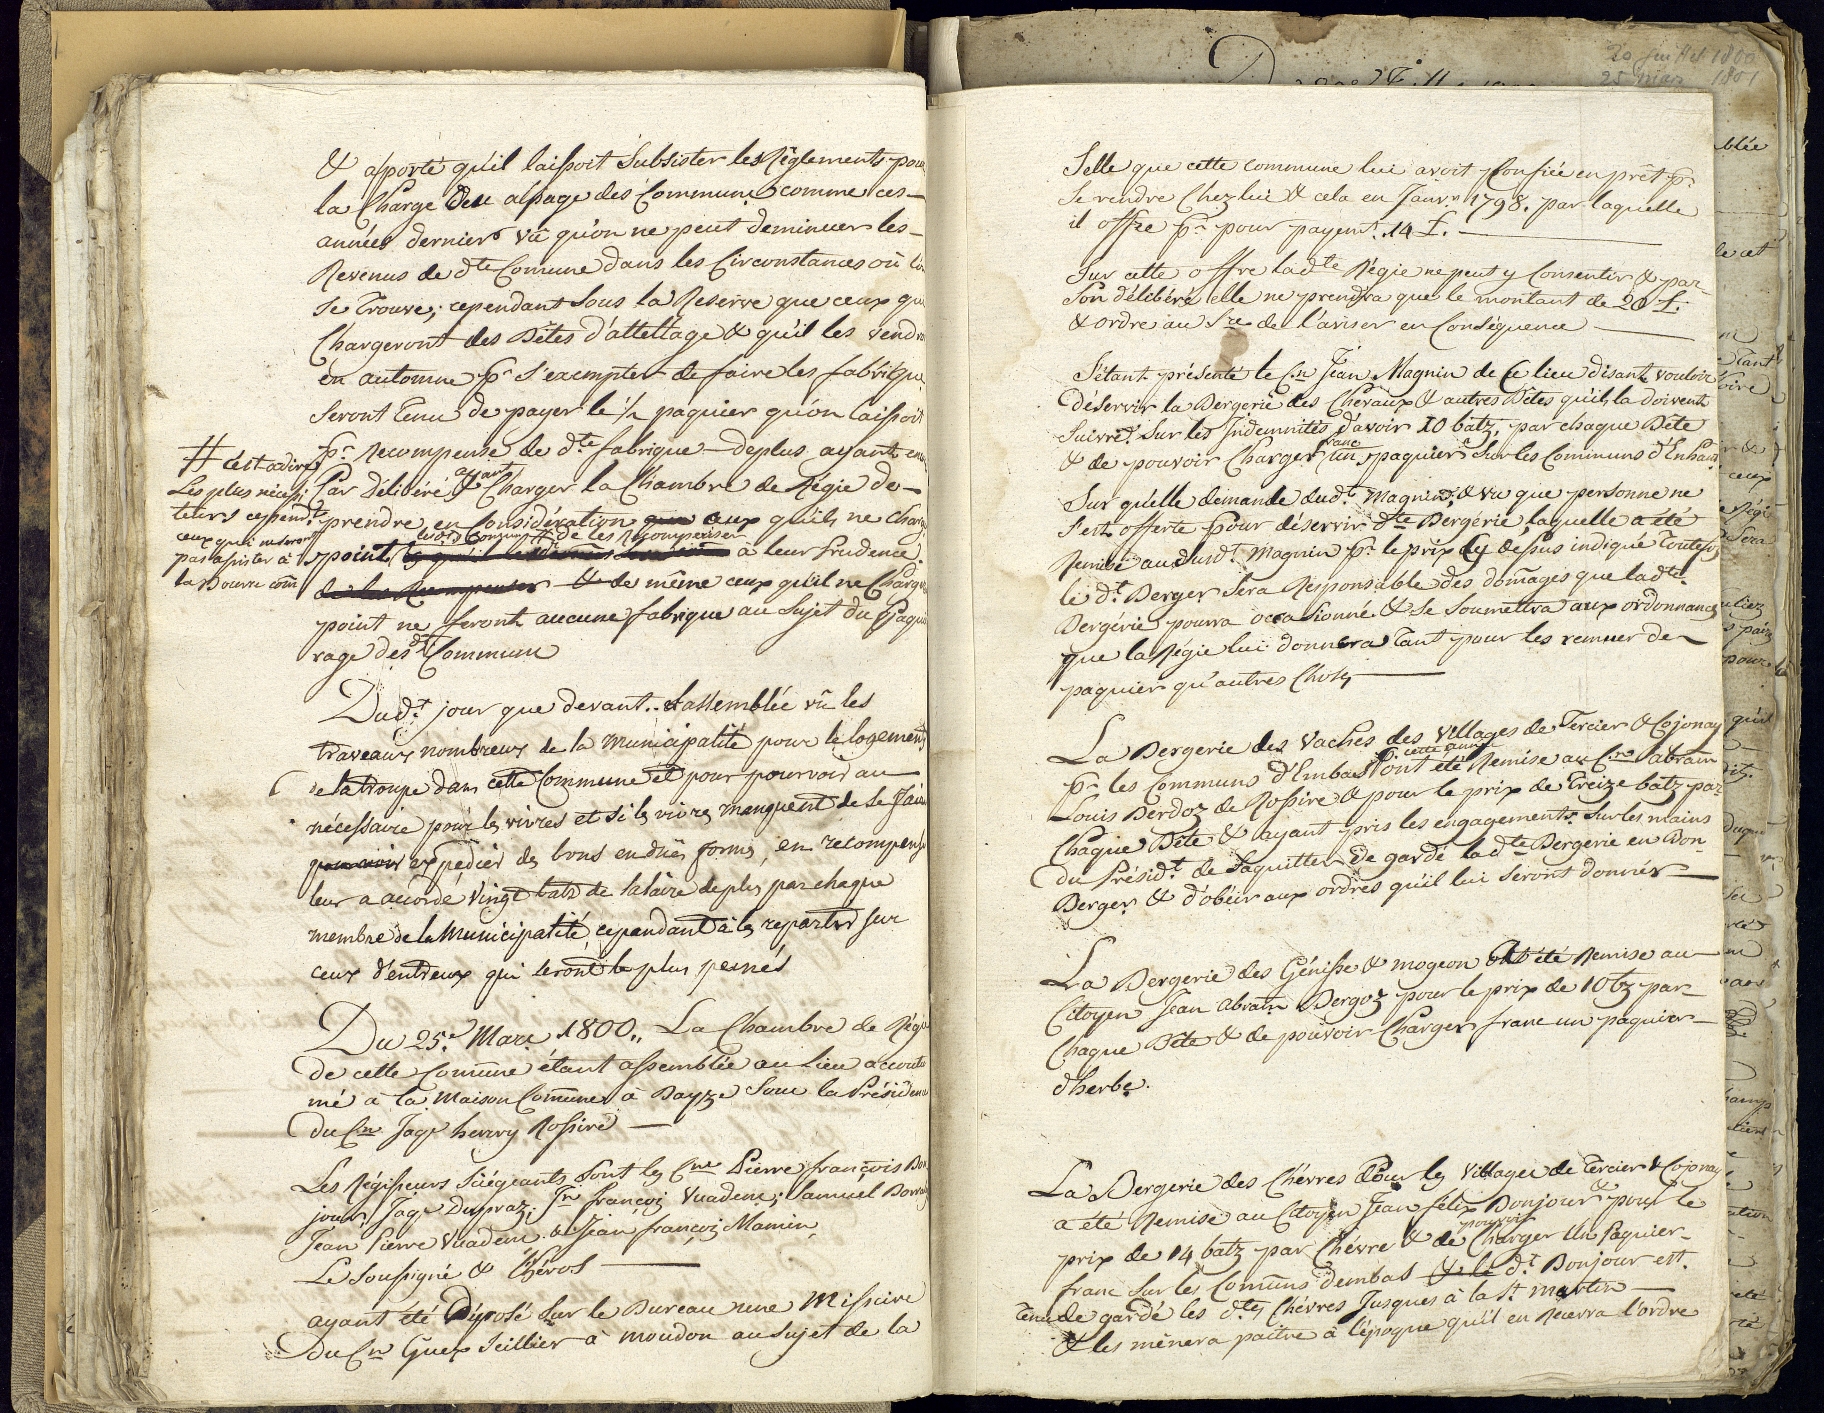 & aporté qu'il laissoit Subsister les Règlements pour
la Charge deu alpage des Commune comme ces
années derniers vû qu'on ne peut deminuer les
Revenus de dte Comune dans les Circonstances où l'on
se Trouve; cependant sous la Reserve que ceux qui
Chargeront des Bêtes d'attellage & qu'il les vendront
en automne pr S'exempter de faire les fabrique
Seront Tenu de payer le ½ paquier qu'on laissoit
pr Recompense de dte fabrique deplus ayant
Par Délibéré ayant Charger la Chambre de Régie de
prendre en Considération que ceux qu'ils ne charge
point à leur Prudence
# c'est adire
Les plus nécessi-
teurs cependt
ceux qui
pas assister à
la Bourse com̄
# de les Recompenser
& de même ceux qu'il ne Charge
point ne feront aucune fabrique au Sujet du Paqui
rage desdt Commun
Dudt jour que devant. L'assemblée vû les
traveaux nombreux de la municipalité pour le logement
de la troupe dans cette Commune et pour pourvoir au
nécessaire pour les vivres et si les vivres manquent de se faire
expédier des bons en düe forme, en recompense
leur a accordé Vingt batz de Salaire de plus par chaque
membre de la Municipalité, cependant à les repartir sur
ceux d'entreux qui seront le plus peinés
Du 25e Mars 1800,, La Chambre de Régie
de cette Comune étant assemblée au Lieu accoutu
mé à la Maison Comune à Bayze Sous la Présidence
du Cn Jaqe henry Rossire
Les Régisseurs Siégeants Sont les Cne Pierre françois Bon
jour, Jaqe Dupraz; Jn françois Vuadens; Samuel
Jean Pierre Vuadens & Jean françois Mamin
Le Soussigné &
ayant été Déposé Sur le Bureau une Missive
du Cn Guex Seillier à Moudon au Sujet de la
20 juillet 1800
25 mars 1801
Selle que cette commune lui avoit Confiée en prêt pr
Se rendre Chez lui & cela en Janvr 1798. par laquelle
il offre pr pour payemt. 14 f.
Sur cette offre ladte Régie ne peut y Consentir & par
Son délibéré elle ne prendra que le montant de 20 f.
& ordre au Sre de l'aviser en Conséquence
S'étant présenté le Cn Jean Magnin de Ce lieu disant vouloir
déservir la Bergerie des Chevaux & autres Bêtes qu'ils la doivent
Suivre. Sur les Indemnités d'avoir 10 batz, par chaque Bête
& de pouvoir Charger franc un paquier Sur les Communs d'Enhaut
Sur qu'elle demande dudt Magnin, & vu que personne ne
s'est offerte pour déservir dte Bergérie, laquelle a été
Remise au Susdt Magnin pr le prix Cy dessus indiqué Toutefois
le dt Berger Sera Responsable des domages que ladte
Bergérie pourra occasionné & Se Soumettra aux ordonnances
que la Régie lui donnera Tant pour les remuer de
paquier qu'autres Choses
La Bergerie des Vaches des Villages de Tercier & Cojonay
pr les Communs d'Embas ont été cette anné Remise au Cne Abram
Louis Berdoz de Rossire & pour le prix de Treize batz par
Chaque Bête & ayant pris les engagements Sur les mains
du Présidt de Saquitter de gardé la dte Bergerie en Bon
Berger & d'obéir aux ordres qu'il lui seront donnés
La Bergerie des Génisse & mogeon ont été Remise au
Citoyen Jean Abram Bergoz pour le prix de 10 bz par
Chaque Bête & de pouvoir Charger franc un paquier
d'herbe.
La Bergerie des Chévres Pour les Villages de Tercier & Cojonay
a été Remise au Citoyen Jean félix Bonjour & pour le
prix de 14 batz par Chévre & de pouvoir Charger Un Paquier
franc Sur les Comuns dembas & le dt Bonjour est
Tenu de gardé les dtes Chévres Jusques à la St martin
& les mènera paître à l'époque qu'il en Recevra l'ordre